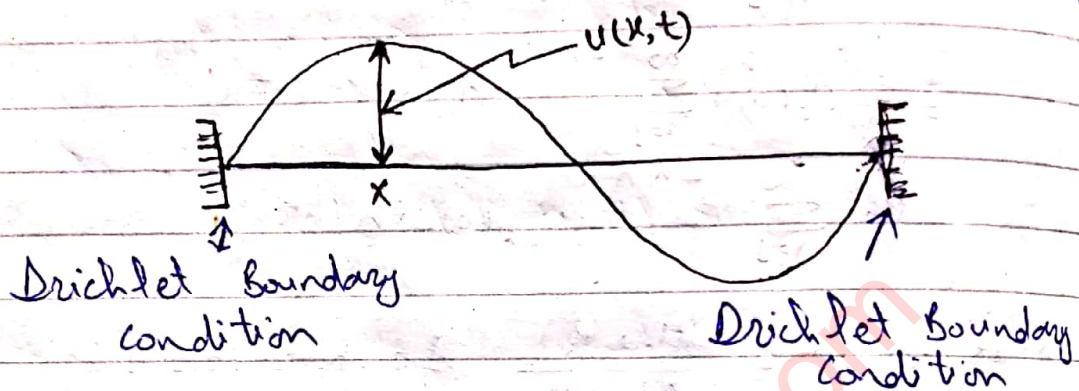 u(x,t)
x
Drichlet Boundary
condition
Drichlet Boundary
condition